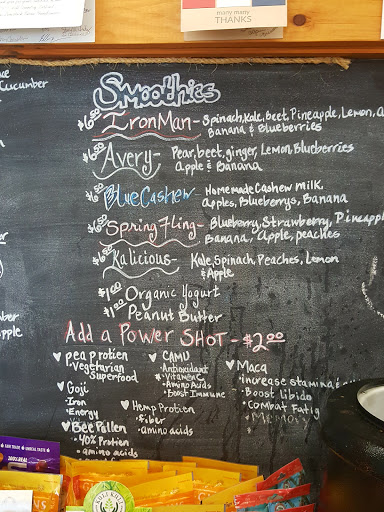 many many
THANKS
Cucumber
Smoothies
$6.50 IronMan- Spinach, Kale, Beet, Pineapple, Lemon,
Banana & Blueberries
$6.50 Avery- Pear, beet, ginger, Lemon, Blueberries
Apple & Banana
$6.50 BlueCashew Homemade Cashew milk,
apples, Blueberrys, Banana
$6.50 Spring Fling- Blueberry, Strawberry, Pineapp
Banana, Apple, peaches
$6.50 Kalicious- Kale, Spinach, Peaches, Lemon
& Apple
$1.00 Organic Yogurt
$1.00 Peanut Butter
pple
Add a Power SHOT - $2.00
♥ pea protien
- Vegetarian
Superfood
♥ Goji
- Iron
- Energy
♥ Bee Pollen
- 40% Protien
- amino acids
♥ CAMU
- Antioxidant
- Vitamin C
- Amino Acids
- Boost Immune
♥ Hemp Protien
- fiber
- amino acids
♥ Maca
- increase stamina &
- Boost libido
- Combat Fatig